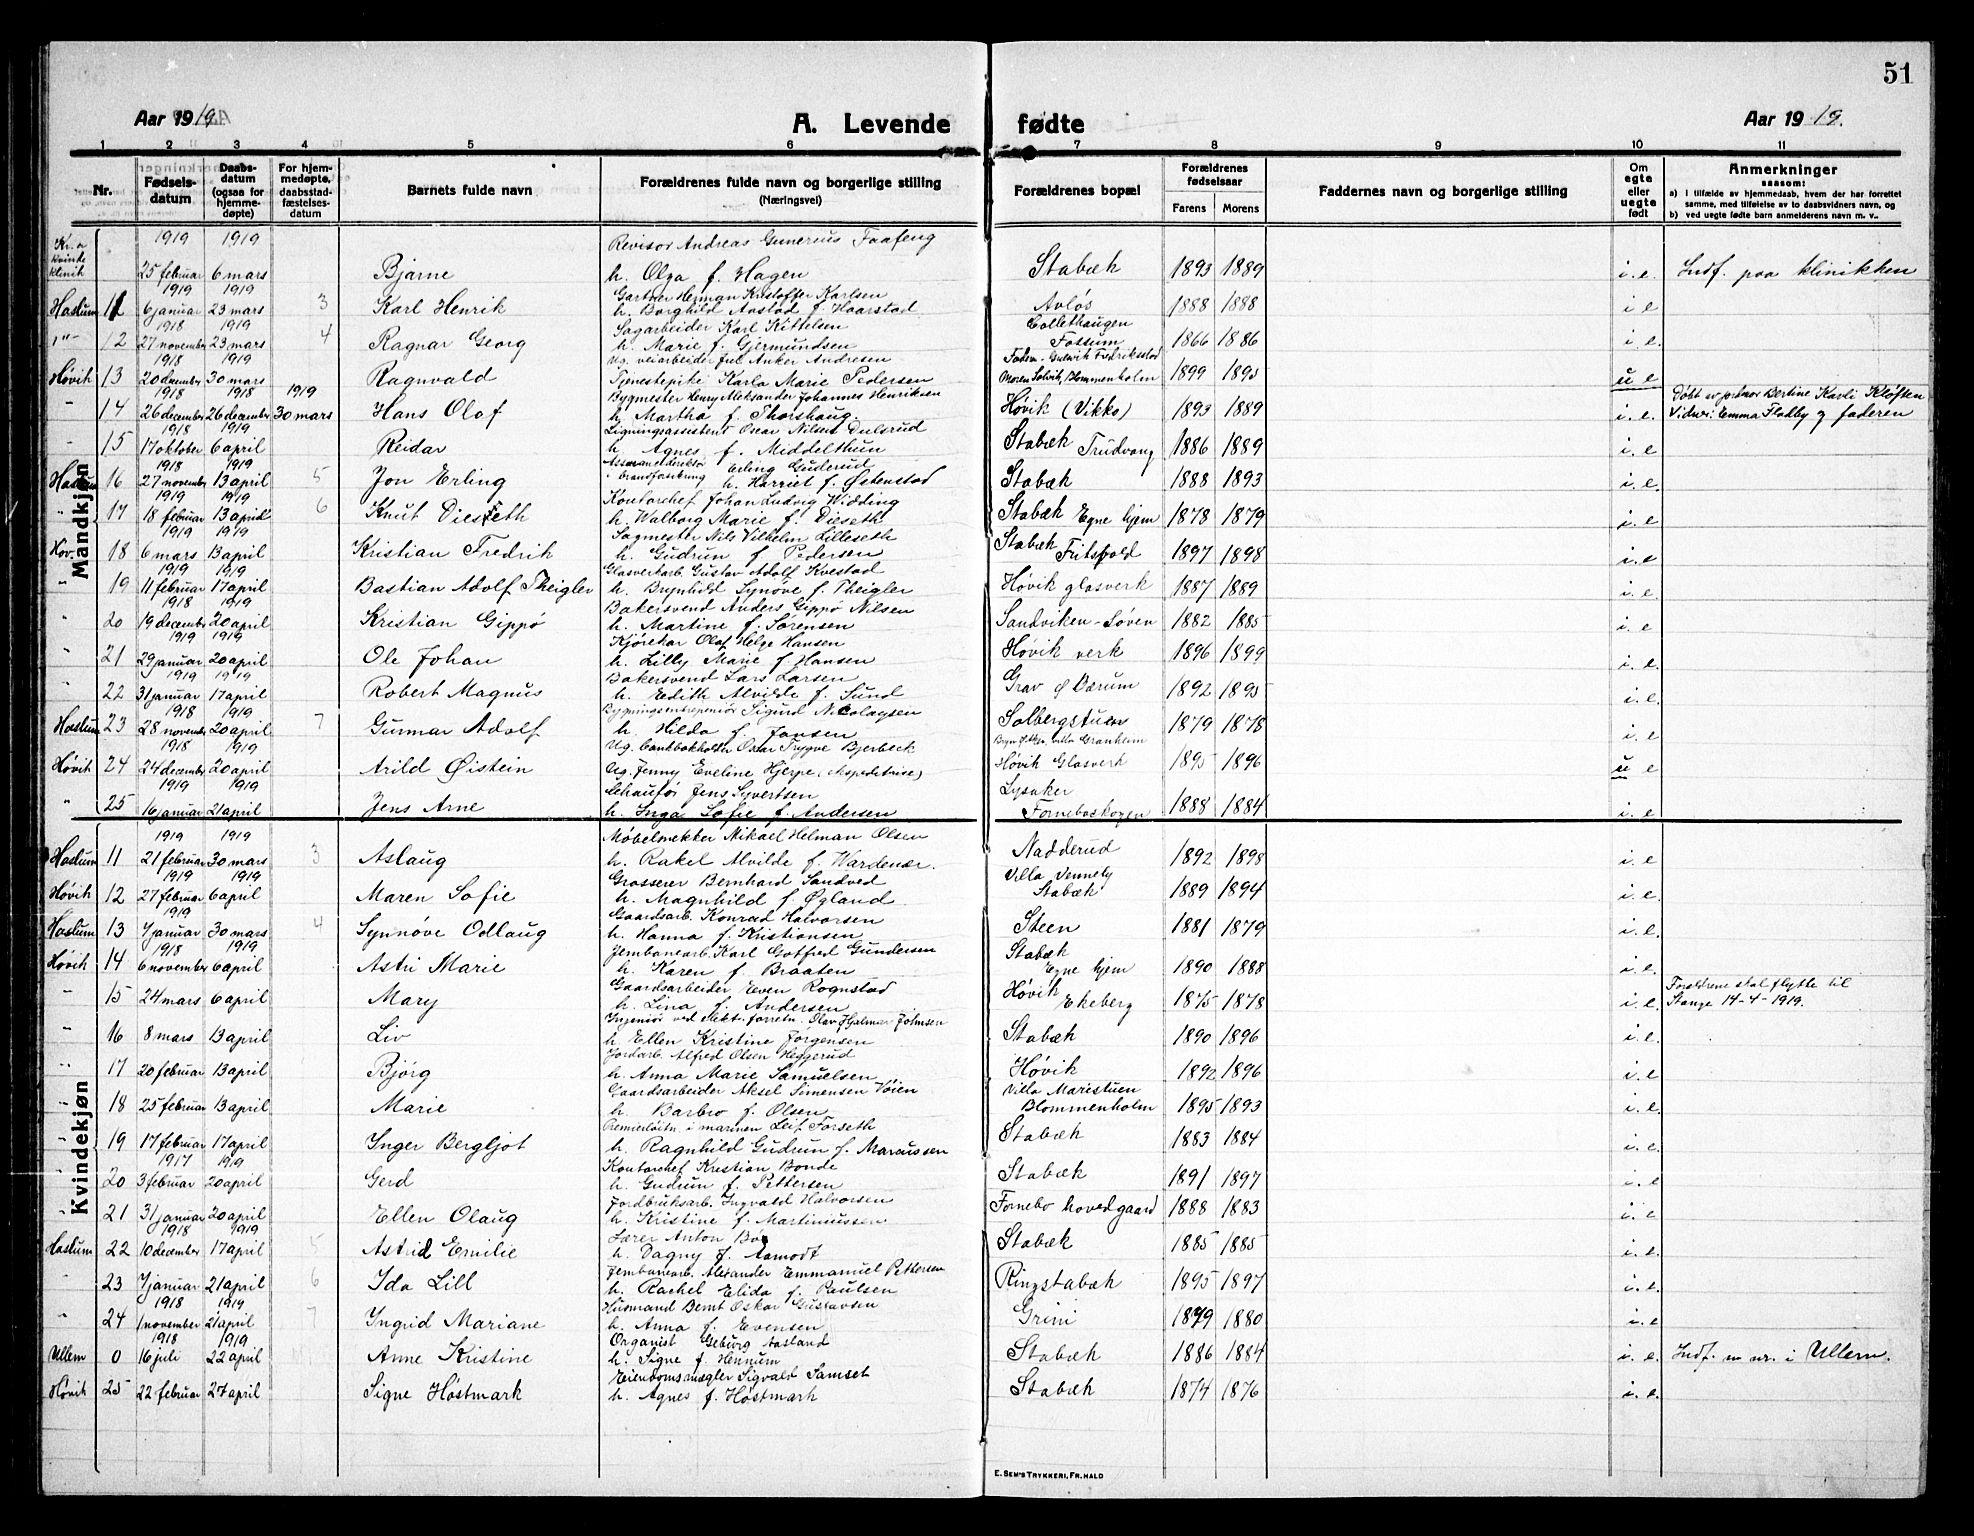 51
Aar 1919 A. Levende fødte Aar 1919.
1 2 3 4 5 6 7 8 9 10 11
Nr. Fødselsdatum Daabsdatum (ogsaa for hjemmedøpte) For hjemmedøpte, daabsstadfæstelsesdatum Barnets fulde navn Forældrenes fulde navn og borgerlige stilling (Næringsvei) Forældrenes bopæl Forældrenes fødselsaar Farens Morens Faddernes navn og borgerlige stilling Om egte eller uegte født Anmerkninger saasom:
a) I tilfælde av hjemmedaab, hvem der har forrettet samme, med tilføielse av to daabsvidners navn, og
b) ved uegte fødte barn anmelderens navn m. v.
Mandkjøn
1919 1919 Revisor Andreas Gunerius Faafeng
Kr.a kvinde klinik 25 februar 6 mars Bjarne h. Olga f. Hagen Stabæk 1893 1889 i. e. Indf. paa klinikken
1919 1919 Gartner Herman Kristoffer Karlsen
Haslum 11 6 januar 23 mars 3 Karl Henrik h. Borghild Aastad f. Haarstad Avløs 1888 1888 i e
1918 1919 Sagarbeider Karl Kittelsen Collethaugen
12 27 november 23 mars 4 Ragnar Georg h. Marie f. Gjermundsen Fossum 1866 1886 i. e.
1918 1919 Ug. veiarbeider Anker Andresen Faderen Fredriksstad
Høvik 13 20 december 30 mars Ragnvald Tjenestepike Karla Marie Pedersen Moren Solvik, Blommenholm 1899 1895 u e
1918 1918 1919 Bygmester Henry Aleksander Johannes Henriksen
14 26 december 26 december 30 mars Hans Olaf h. Martha f. Thorshaug. Høvik (Vikko) 1893 1889 i. e. Døbt av Bertine Karli Kløften Vidner: Emma Fladby og faderen
1918 1919 Ligningsassistent Oscar Nilsen Dulsrud
15 17 oktober 6 april Reidar h. Agnes f. Middelthun Stabæk Trudvang 1886 1889 i. e
1918 1919 Assurancedirektør i brandforsikring Erling Guderud
Haslum 16 27 november 13 april 5 Jon Erling h. Harriet f. Østenstad Stabæk 1888 1893 i. e.
1919 1919 Kontorchef Johan Ludvig Widding
17 18 februar 13 april 6 Knut Dieseth h. Walborg Marie f. Dieseth Stabæk Egne hjem 1878 1879 i. e
1919 1919 Sagmester Nils Vilhelm Lilleseth
Høv. 18 6 mars 13 april Kristian Fredrik h. Gudrun f. Pedersen Stabæk Fritsvold 1897 1898 i. e
1919 1919 Glasverkarb. Gustav Adolf Kvestad
19 11 februar 17 april Bastian Adolf Theigler h. Brynhild Synøve f. Theigler Høvik glasverk 1887 1889 i. e.
1918 1919 Bakersvend Anders Gippø Nilsen
20 19 december 20 april Kristian Gippø h. Martine f. Sørensen Sandviken - Løven 1882 1885 i. e
1919 1919 Kjørekar Olaf Helge Hansen
21 29 januar 20 april Ole Johan h. Lilly Marie f. Hansen Høvik verk 1896 1899 i. e.
1919 1919 Bakersvend Lars Larsen
22 31 januar 17 april Robert Magnus h. Edith Alvilde f. Sund Grav Ø Bærum 1892 1895 i. e.
1918 1919 Bygningsentreprenør Sigurd Nicolaysen
Haslum 23 28 november 20 april 7 Gunnar Adolf h. Hilda f. Jansen Solbergstuen 1879 1878 i. e
1918 1919 Ug. bankbokholder Oscar Trygve Bjerbeck villa Granheim
Høvik 24 24 december 20 april Arild Øistein Ug. Jenny Eveline Hjerpe (Ekspeditrise) Høvik Glasverk 1895 1896 u e
1919 1919 Chauffør Jens Syvertsen Lysaker
25 16 januar 21 april Jens Arne h. Inga Sofie f. Andersen Forneboskogen 1888 1884 i. e
Kvindekjøn
1919 1919 Møbelsnekker Mikael Helman Olsen
Haslum 11 21 februar 30 mars 3 Aslaug h. Rakel Alvilde f. Wardenær. Nadderud 1892 1898 i. e
1919 1919 Grosserer Bernhard Sandved Villa Vennely
Høvik 12 27 februar 6 april Maren Sofie h. Magnhild f. Øgland. Stabæk 1889 1894 i. e.
1919 Gaardsarb. Konrad Halvorsen
Haslum 13 7 januar 30 mars 4 Synnøve Odlaug h. Hanna f. Kristiansen Steen 1881 1879 i. e.
1918 1919 Jernbanearb. Karl Gotfred Gundersen Stabæk
Høvik 14 6 november 6 april Astri Marie h. Karen f. Braaten Egne hjem 1890 1888 i. e.
Gaardsarbeider Even Rognstad Høvik
15 24 mars 6 april Mary h. Lina f. Andersen Ekeberg 1875 1878 i. e. Forældrene skal flytte til Stange 14-4-1919.
Ingeniør ved elekt. forretn. Olav Hjalmar Johnsen
16 8 mars 13 april Liv h Ellen Kristine Jørgensen Stabæk 1890 1896 i. e.
Jordarb. Alfred Olsen Heggerud
17 20 februar 13 april Bjørg h. Anna Marie Samuelsen Høvik 1892 1896 i. e
Gaardsarbeider Aksel Simensen Vøien Villa Maristuen
18 25 februar 13 april Marie h. Barbro f. Olsen Blommenholm 1895 1893 i. e.
Premierløitn. i marinen Leif Forseth
19 17 februar 17 april Inger Bergljot h. Ragnhild Gudrun f. Marcussen Stabæk 1883 1884 i. e.
1917 1919 Kontorchef Kristian Bonde
20 3 februar 20 april Gerd h. Gudrun f. Pettersen Stabæk 1891 1897 i. e
Jordbruksarb. Ingvald Halvorsen
21 31 januar 20 april Ellen Olaug h. Kristine f. Martiniussen Fornebo hovedgaard 1888 1883 i. e.
1918 1919 Lærer Anton Bø
Haslum 22 10 december 17 april 5 Astrid Emilie h. Dagny f. Aamodt Stabæk 1885 1885 i. e.
Jernbanearb. Alexander Emmanuel Pettersen
23 7 januar 21 april 6 Ida Lill h. Rachel Elida f. Paulsen Ringstabæk 1895 1897 i. e.
1918 1919 Husmand Bernt Oskar Gustavsen
24 1 november 21 april 7 Ingrid Mariane h. Anna f. Evensen Grini 1879 1880 i. e
1918 1919 Organist Geburg Aasland
Ullern 0 16 juli 22 april Anne Kristine h. Signe f. Hennum Stabæk 1886 1884 i. e. Indf. m nr. i Ullern.
Eiendomsmægler Sigvald Samset
Høvik 25 22 februar 24 april Signe Høstmark h. Agnes f. Høstmark Stabæk 1874 1876 i. e.
E. SEM'S TRYKKERI, FR.HALD